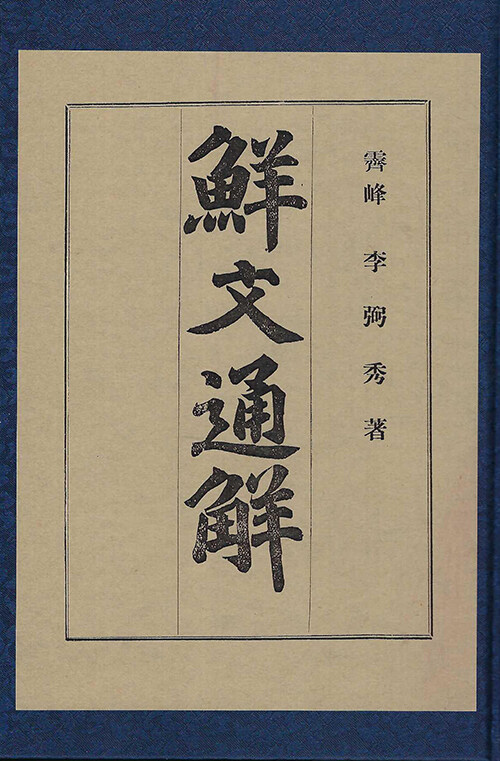 霽峰 李弼秀著
鮮文通觧